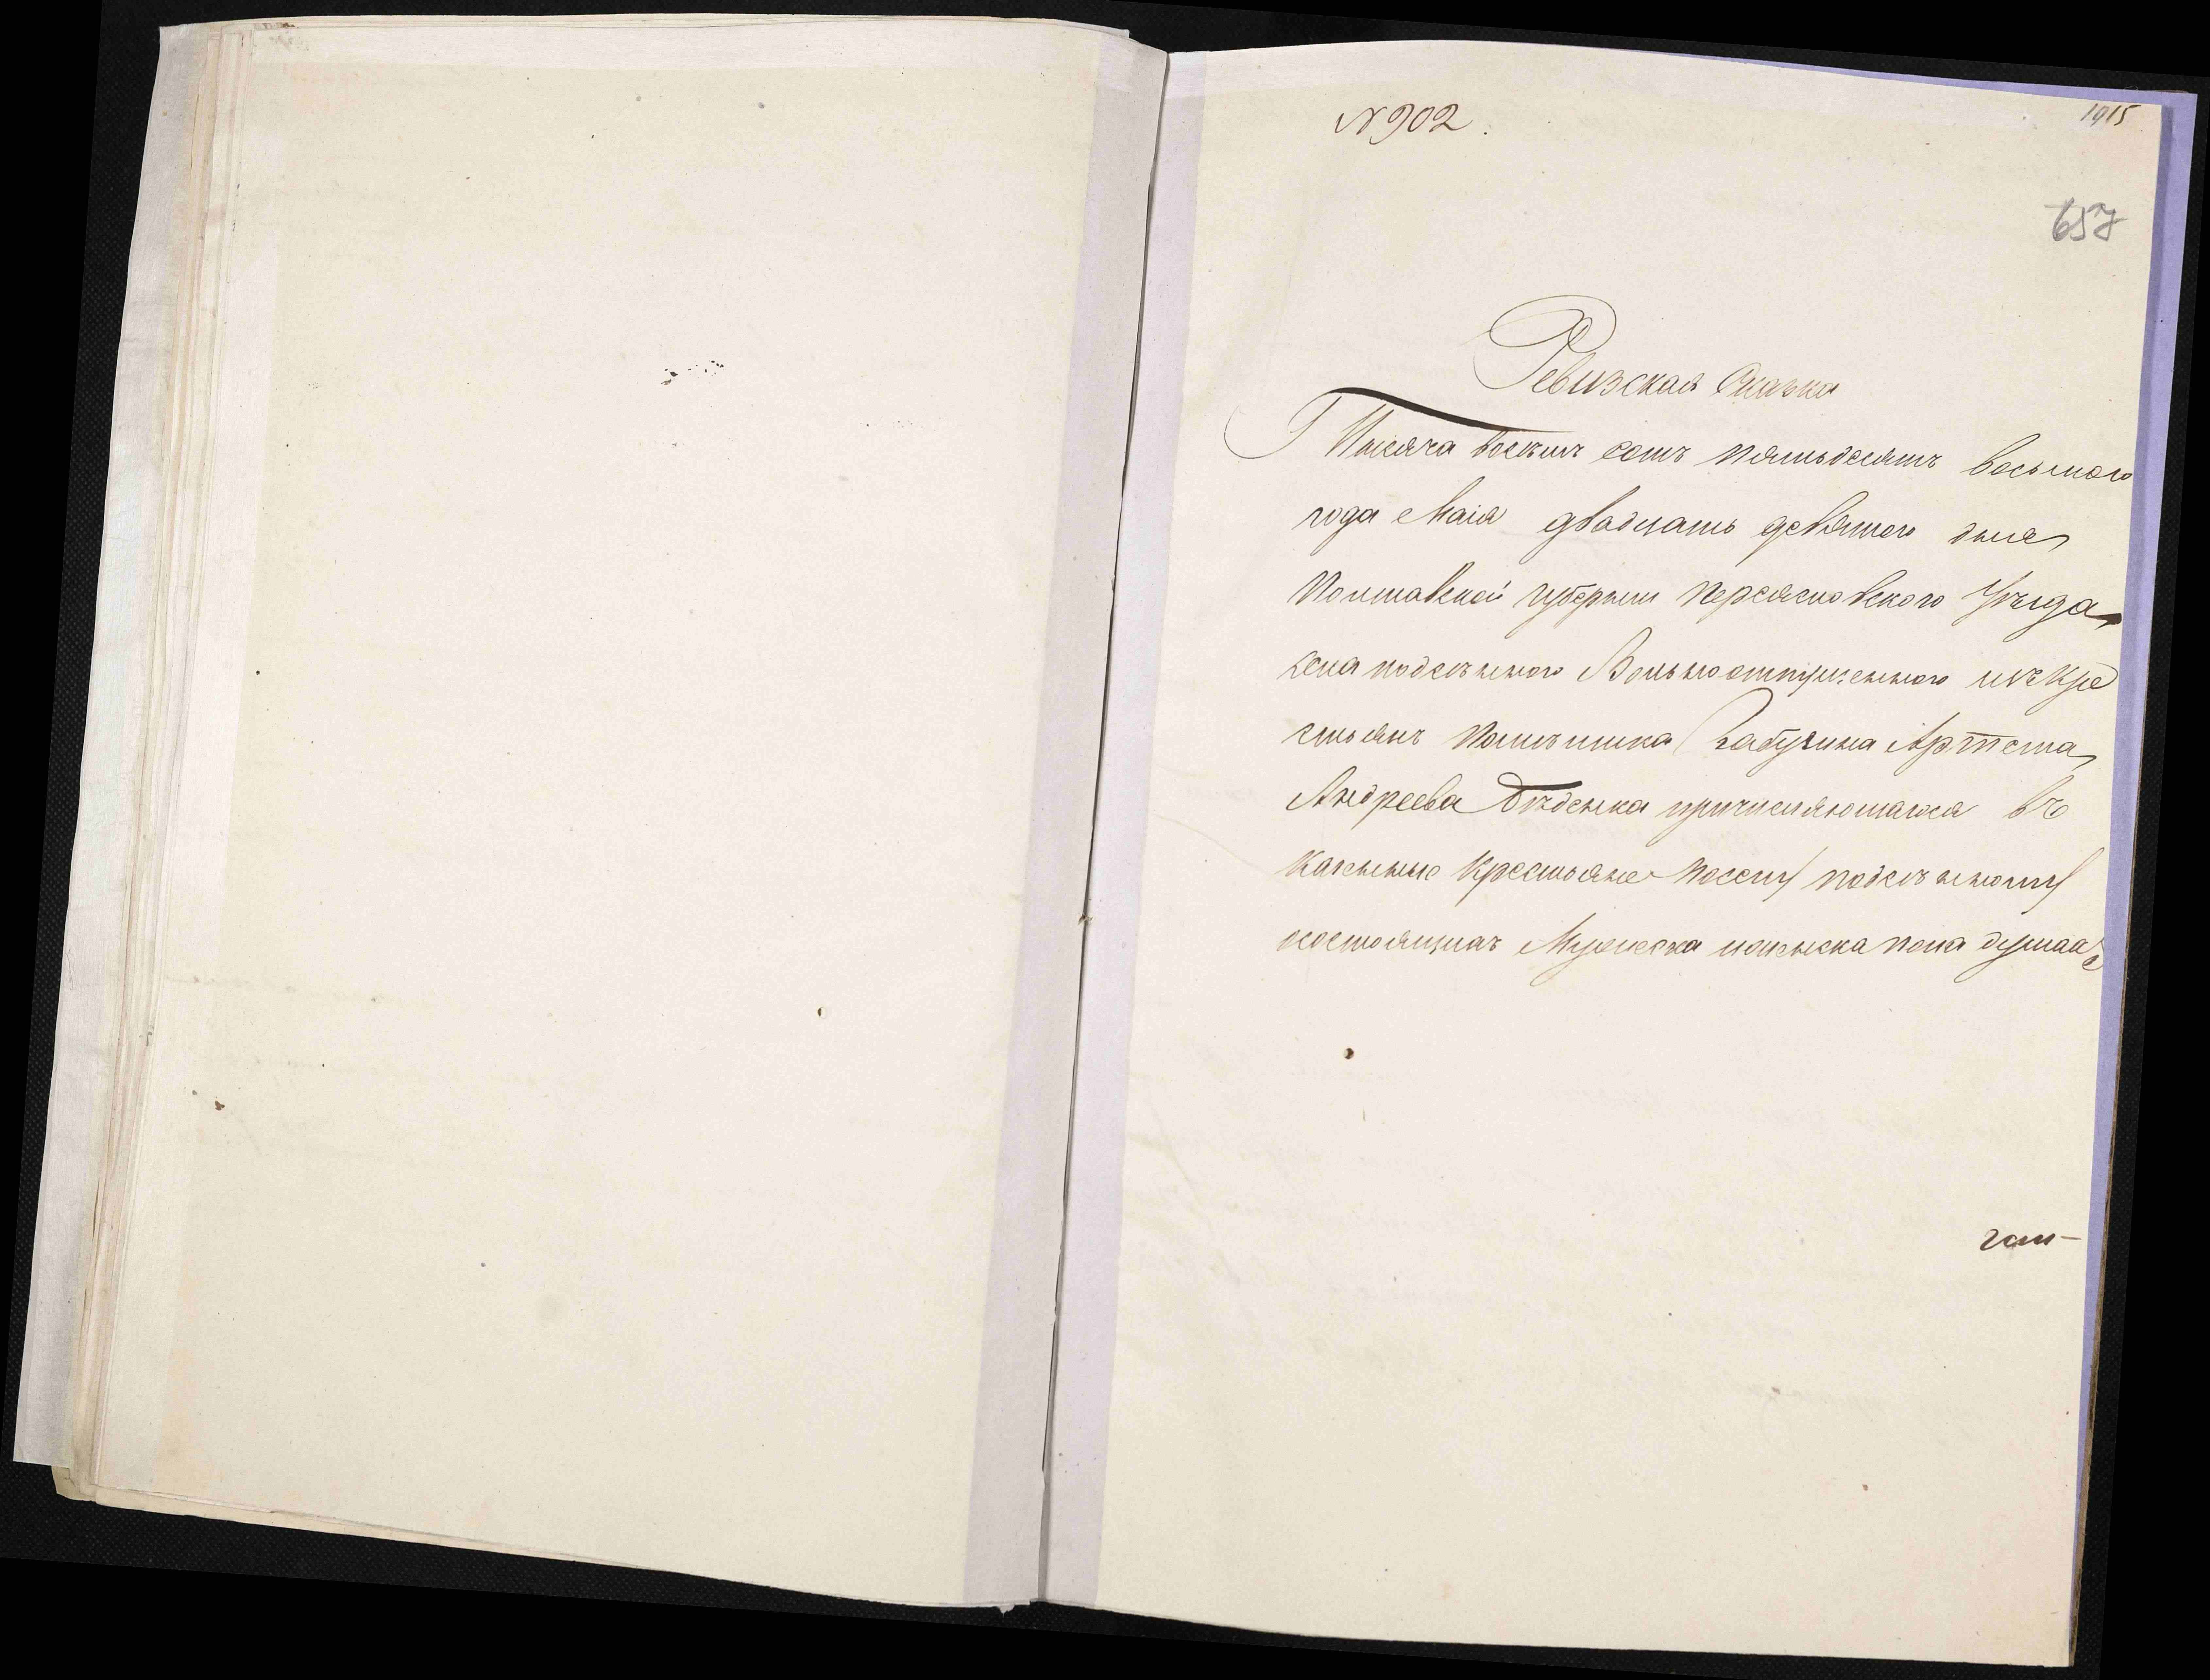 N 902.
1915
657
Ревизская Сказка
Тысяча восемь сотъ пятьдесятъ восьмого
года Маія двадцать девятого дня
Полтавской губерніи Переясловского Уѣзда
села подсѣнного Вольноотпущенного изъ Кре
стьянъ Помѣщика Артема
Андреева Бѣденка причисляющагося въ
Казенные Крестьяне посему подсѣнному
осостоящихъ Мужеска иженска пола душах